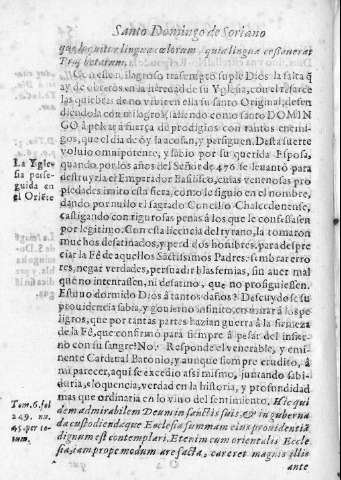 Santo Domingo de Soriano
que loquitur lingua cœlorum, quia lingua cessaverat
Con este milagroso trasempto suple Dios la falta q̃
ay de obreros en la heredad de su Yglesia, con el resarce
las quiebras de no vivir en ella su santo Original, defen
diendola con milagros, saliendo como santo DOMIN
GO à pelear à fuerça de prodigios con tantos enemi-
gos, que el dia de oy la acosan, y persiguen. Desta suerte
voluio omnipotente, y sabio por su querida Esposa,
La Ygle
sia perse-
guida en
el Oriẽte
quando por los años del Señor de 476 se leuantò para
destruyrla el Emperador Basilisco, cuias venenosas pro
piedades imitò esta fiera, como le siguio en el nombre,
dando por nullo el sagrado Concilio Chalcedonense,
castigando con rigurosas penas à los que le confessasen
por legitimo. Con esta licencia del tyrano, la tomaron
muchos desatinados, y perdidos hombres, para despre
ciar la Fè de aquellos Sãctissimos Padres, sembrar erro
res, negar verdades, persuadir blasfemias, sin auer mal
que no intentassen, ni desatino, que no prosiguiessen.
Estuvo dormido Dios à tantos daños? Descuydose su
providencia sabia, y gouierno infinito, en mirar à los pe
ligros, que por tantas partes hazian guerra à la firmeza
de la Fè, que confirmò para siempre à pesar del infier-
no con su sangre? No. Responde el venerable, y emi-
nente Cardenal Baronio, y aunque siempre erudito, à
mi parecer, aqui se excedio assi mismo, juntando sabi-
duria, eloquencia, verdad en la historia, y profundidad
Tom. 6. fol
249. nu.
45. per to-
tum.
mas que ordinaria en lo vivo del sentimiento. Hic qui
dem admirabilem Deum in sanctis suis, & in guberna
da custodiendaque Ecclesia summam eius providentiã
dignum est contemplari. Etenim cum orientalis Eccle
sia, tam prope modum arefacta, careret magnis illis
ante